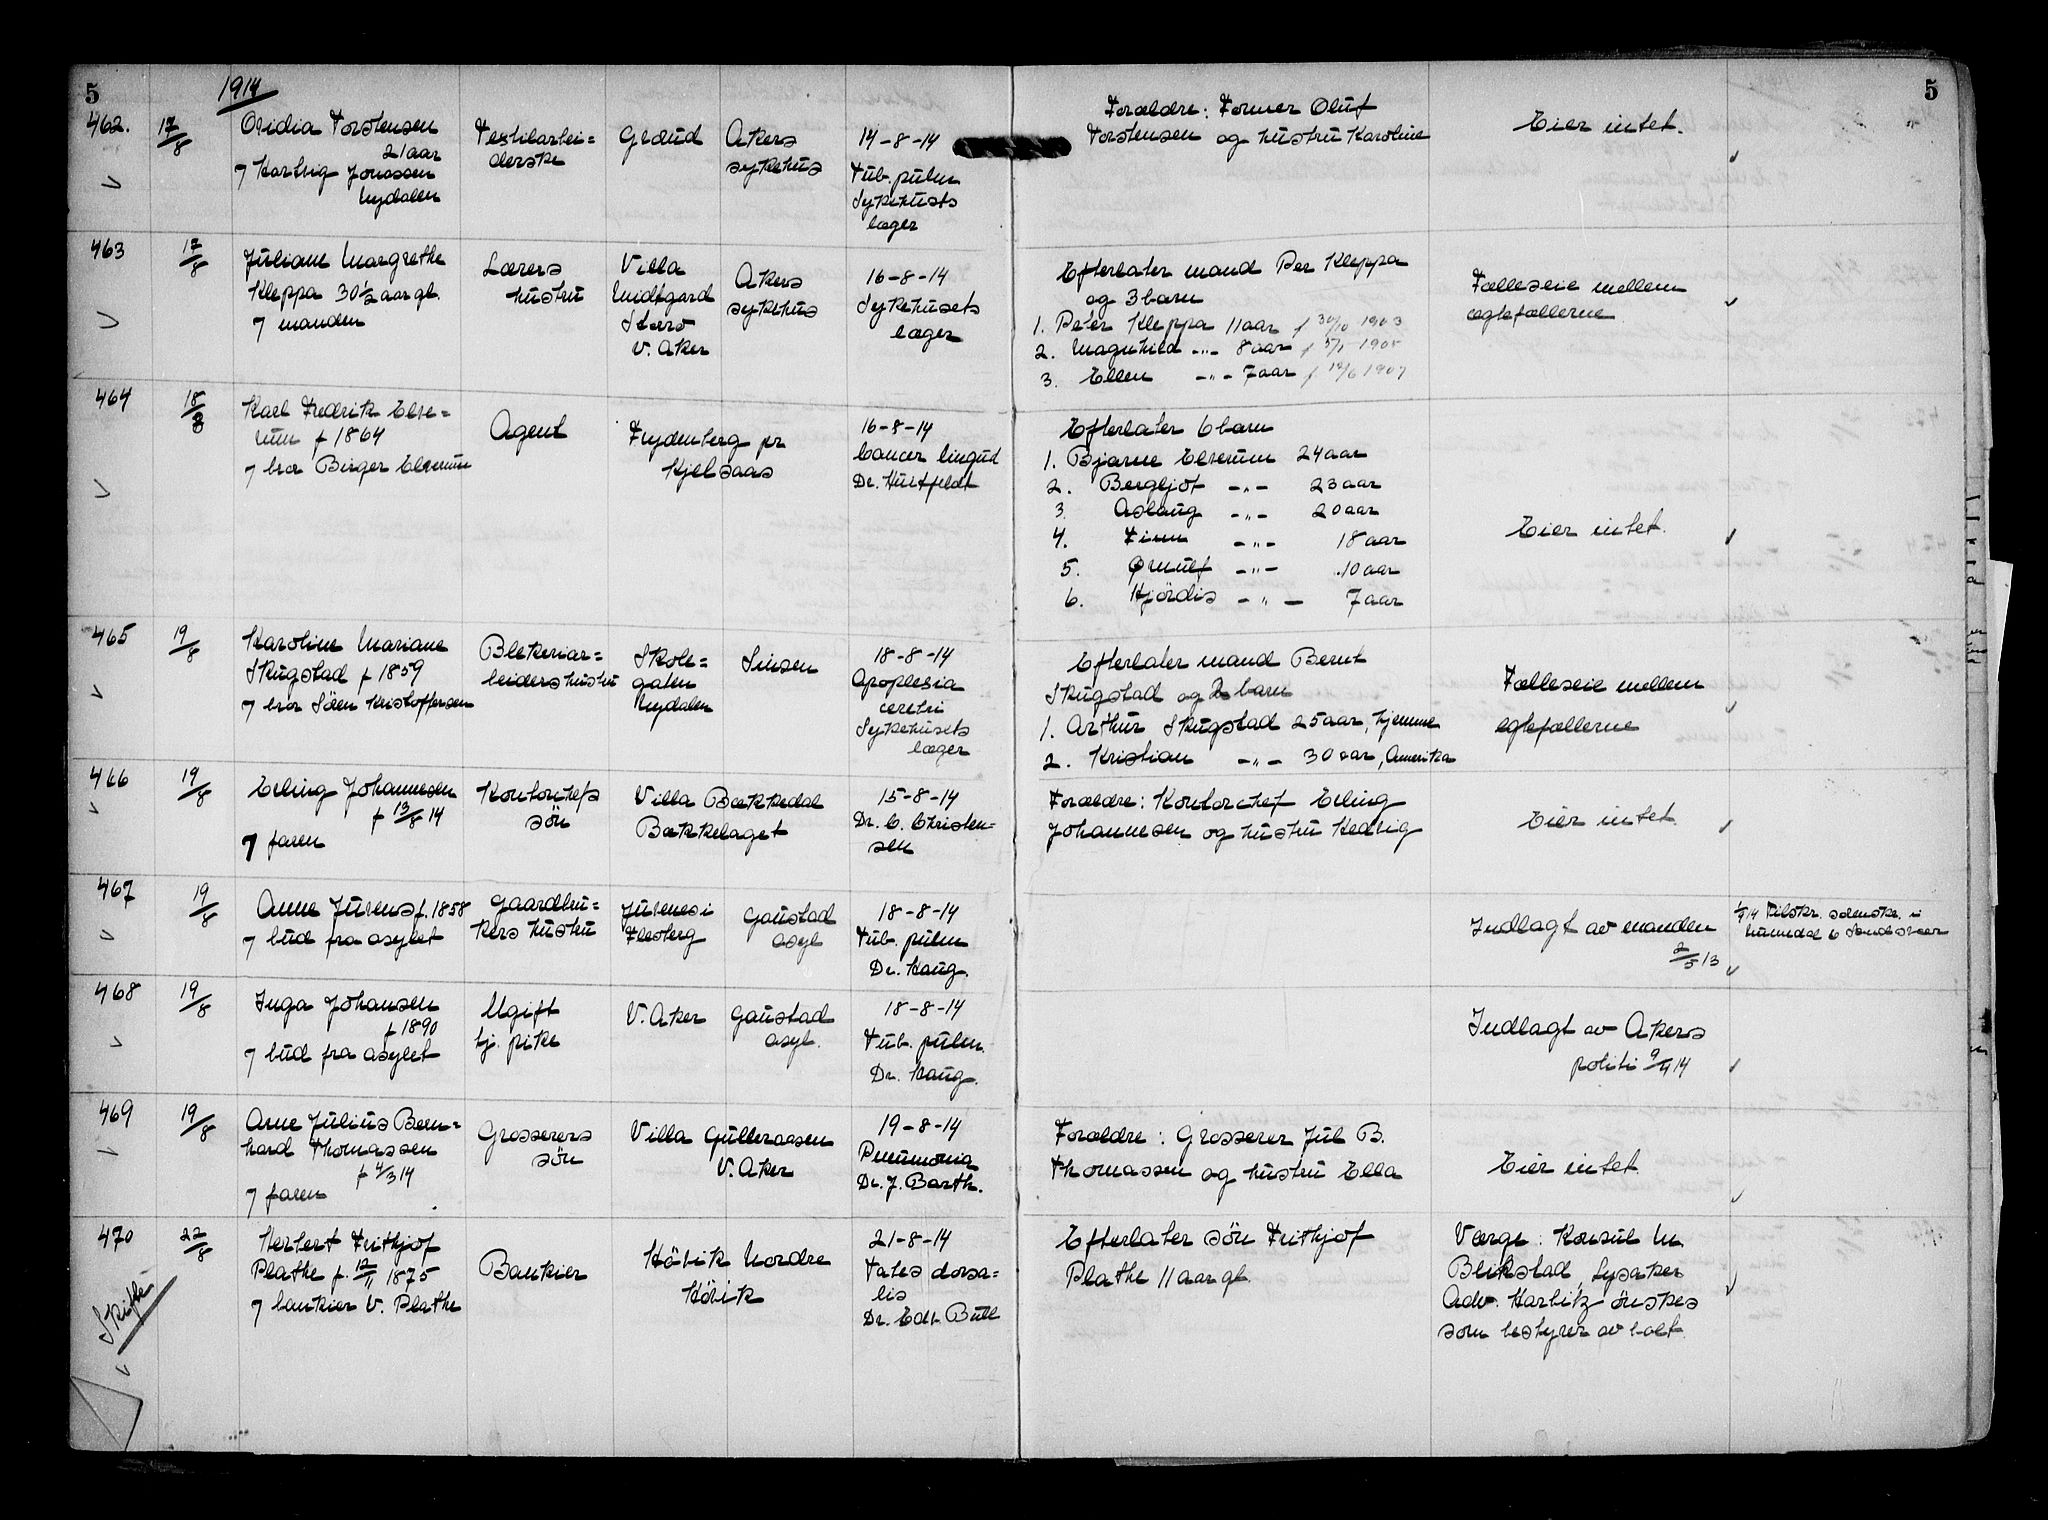 5
1914
5
462. 17/8
Ovidia Torstensen
21 aar
7 Hartvig Jonassen
Nydalen
Textilarbei=
derske
Grorud
Akers
sykehus
14-8-14
Tub. pulm
Sykehusets
læger
Forældre: Former Oluf
Torstensen og hustru Karoline
Eier intet.
463 17/8
Juliane Margrethe
Kleppa 30½ aar gl.
7 manden
Lærers
hustru
Villa
Midtgard
V. Aker
Akers
sykehus
16-8-14
Sykehusets
læger
Efterlater mand Per Kleppa
og 3 barn
1. Peter Kleppa 11 aar f 30/10 1903
2. Magnhild -"- 8 aar
3. Ellen -"- 7 aar f 12/6 1907
Fælleseie mellem
ægtefællerne
464 18/8
Karl Fredrik Elve=
rum f 1864
7 bror Birger Elverum
Agent
Frydenberg pr
Kjelsaas
16-8-14
Cancer lingua
Dr. Huitfeldt
Efterlater 6 barn
1. Bjarne Elverum 24 aar
2. Bergljot -"- 23 aar
3. Aslaug -"- 20 aar
4. Finn -"- 18 aar
5. Ørnulf -"- 10 aar
6. Hjördis -"- 7 aar
Eier intet.
465 19/8
Karoline Mariane
Skugstad f 1859
7 bror Sören Kristoffersen
Blekeriar=
beiders hustru
Skole=
gaten
Nydalen
Sinsen
18-8-14
Apoplesia
cerebri
Sykehusets
læger
Efterlater mand Bernt
Skugstad og 2 barn
1. Arthur Skugstad 25 aar, hjemme
2. Kristian -"- 30 aar, Amerika
Fælleseie mellem
egtefællerne
466 19/8
Erling Johannesen
f 13/8 14
7 faren
Kontorchefs
sön
Villa Bækkedal
Bækkelaget
15-8-14
Dr. C. Christen=
sen
Forældre: Kontorchef Erling
Johannesen og hustru Hedvig
Eier intet.
467 19/8
Anne Juvens f. 1858
7 bud fra asylet
Gaardbru=
kers hustru
Juvenes i
Flesberg
Gaustad
asyl
18-8-14
Tub. pulm
Dr. Haug.
Indlagt av manden
2/5 13
468 19/8
Inga Johansen
f 1890
7 bud fra asylet
Ugift
tj. pike
V. Aker
Gaustad
asyl.
18-8-14
Tub. pulm.
Dr. Haug.
Indlagt av Akers
politi 9/4 14
469 19/8
Arne Julius Bern=
hard Thomassen
f 4/3 14
7 faren
Grosserers
sön
Villa Gulleraasen
V. Aker
19-8-14
Pneumonia
Dr. J. Barth.
Forældre: Grosserer Jul B.
Thomassen og hustru Ella
Eier intet
470 22/8
Skifte
Herbert Frithjof
Plathe f. 12/11 1875
7 bankier V. Plathe
Bankier
Hövik Nordre
Hövik
21-8-14
Tabes dorsa=
lis
Dr. Edv. Bull
Efterlater sön Frithjof
Plathe 11 aar gl.
Værge: Konsul M.
Blikstad, Lysaker
Adv. Harbitz önskes
som bestyrer av boet.